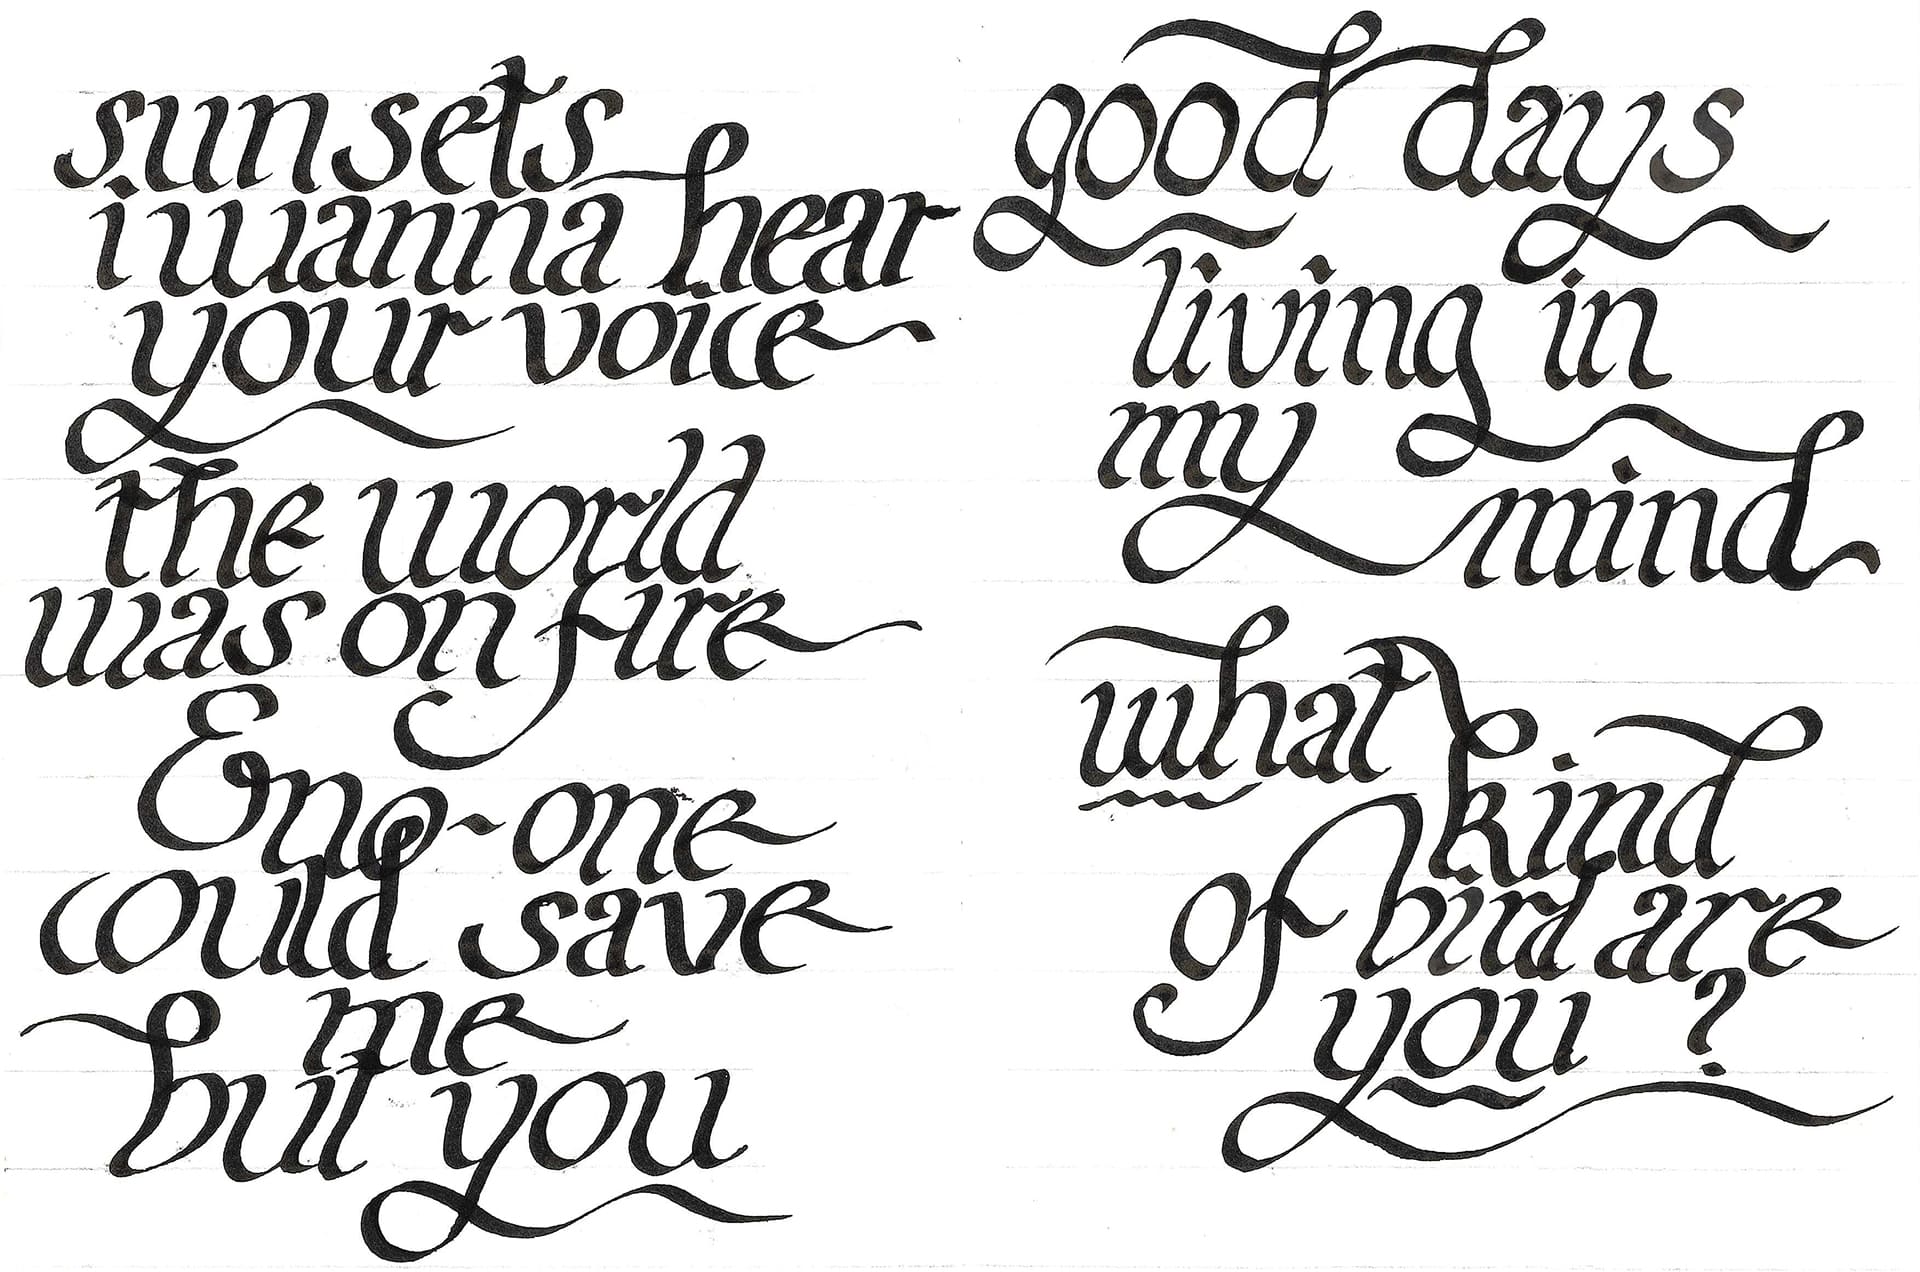 sunsets
i wanna hear
your voice
the world
was on fire
& no-one
could save
me
but you
good days
living in
my mind
what kind
of bird are
you ?